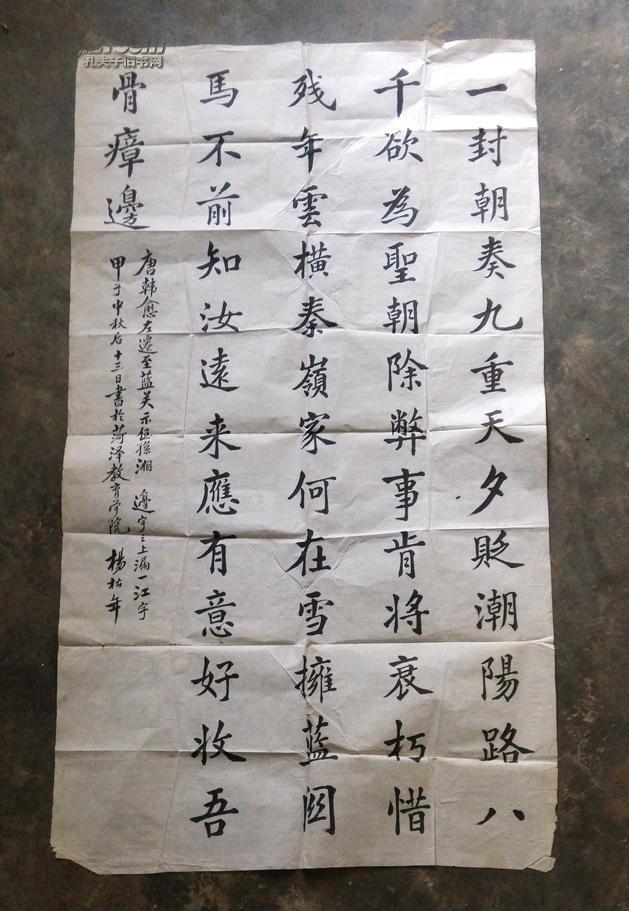 一封朝奏九重天夕貶潮陽路八
千欲為聖朝除弊事肯将衰朽惜
残年雲横秦嶺家何在雪擁蓝関
馬不前知汝遠来應有意好收吾
骨瘴邊
唐韓愈左遷至蓝关示侄孫湘 邊字之上漏一江字
甲子中秋后十三日書於菏泽教育学院 楊松年
孔夫子旧书网